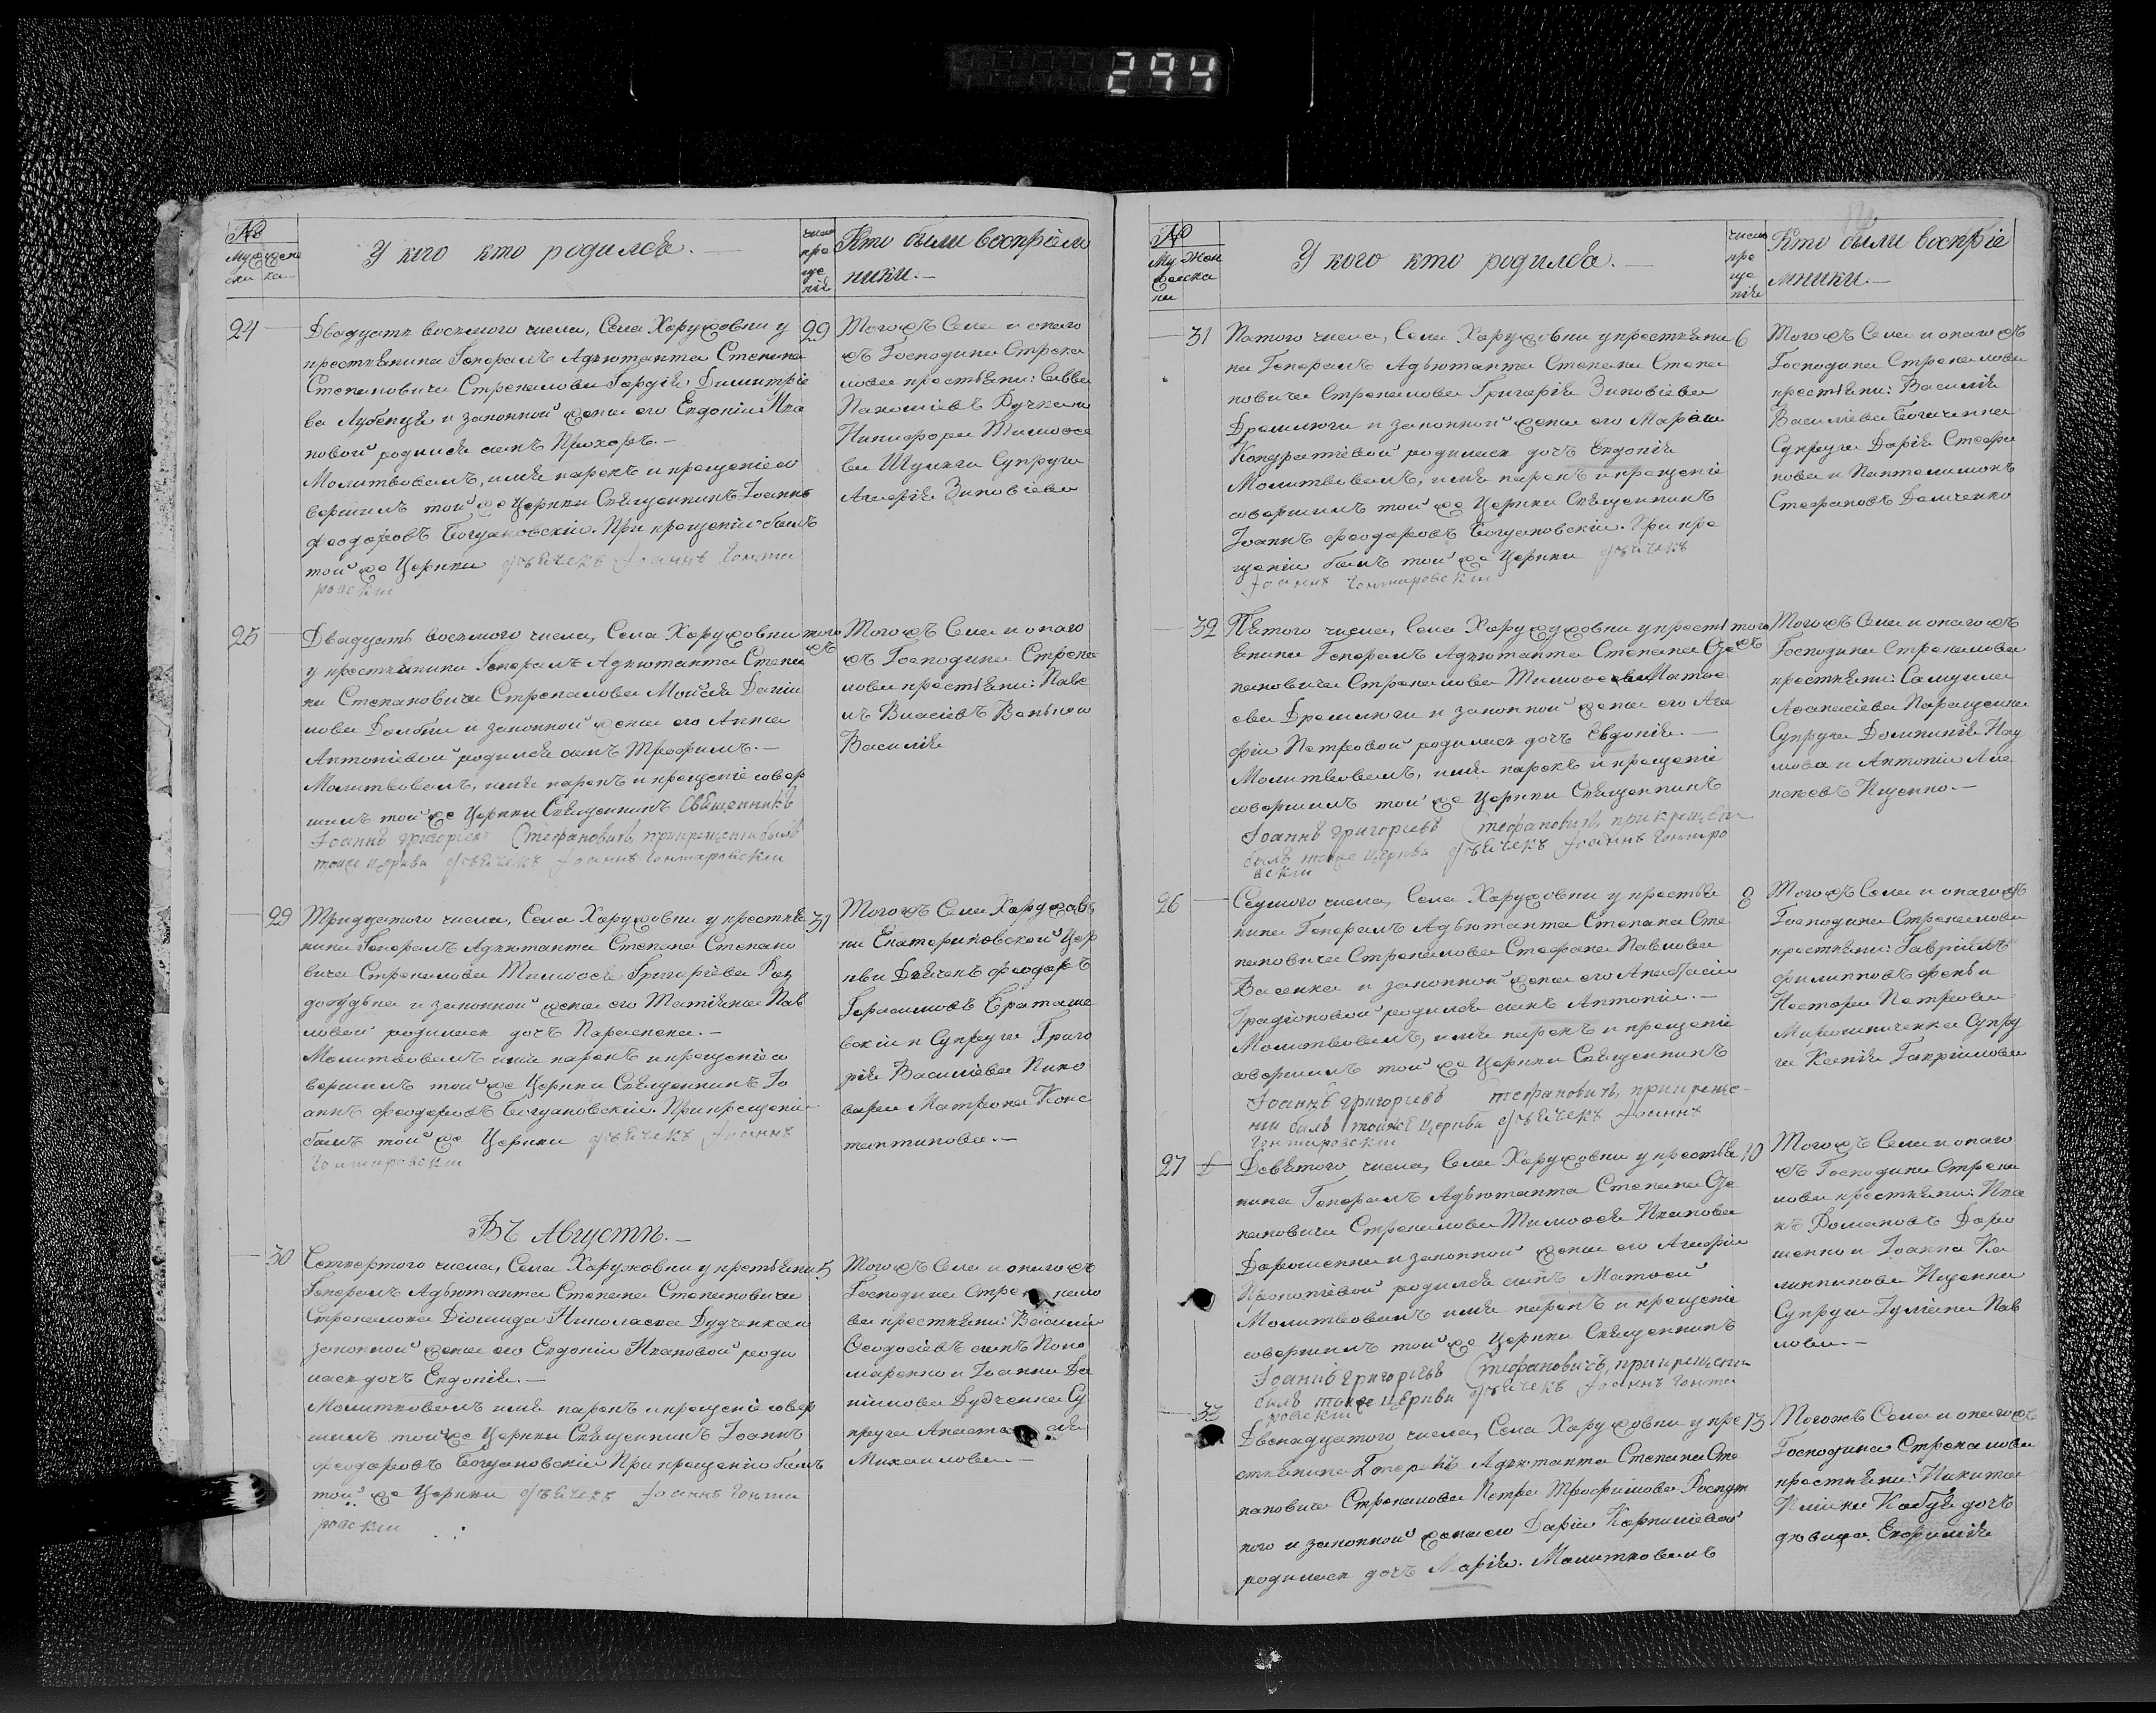 294
№
Муже
ски
Жен
ска
У кого кто родился. —
число
кре
ще
нія
Кто были воспріем
ники. —
24
Двадцать восьмого числа, Села Харужовки у
крестьянина Генералъ Адьютанта Степана
Степановича Стрекалова Гордія Димитріе
ва Лубенця и законной жены его Евдокіи Ива
новой родился сынъ Прохоръ. —
Молитвовалъ, имя нарекъ и крещеніе со
вершилъ той же Церкви Священникъ Іоаннъ
Феодоровъ Богдановскій. При крещеніи былъ
той же Церкви дьячекъ Іоаннъ Гонта
ровскій
29
Того жъ Села и онаго
жъ Господина Стрека
лова крестьяни: Савва
Пахоміевъ Ручка и
Никифора Тимоѳее
ва Шулики Супруга
Агафія Зиновіева
25
Двадцать восьмого числа, Села Харужовки
у крестьянина Генералъ Адьютанта Степа
на Степановича Стрекалова Мойсея Дании
лова Долбни и законной жены его Анны
Антоніевой родился сынъ Трофимъ. —
Молитвовалъ, имя нарекъ и крещеніе совер
шилъ той же Церкви Священникъ Священникъ
Іоаннъ Григоріевъ Стефановичъ, прикрещени былъ
тойже церкви дьячекъ Іоаннъ Гонтаровскій
того
жъ
Того жъ Села и онаго
жъ Господина Стрека
лова крестьяни: Паве
лъ Власіевъ
Василія
29
Тридцатого числа, Села Харужовки у крестья
нина Генералъ Адьютанта Степана Степано
вича Стрекалова Тимоѳея Григоріева
и законной жены его Татіяны Пав
ловой родилась дочь Параскева. —
Молитвовалъ имя нарекъ и крещеніе со
вершилъ той же Церкви Священникъ Іо
аннъ Феодоровъ Богдановскій. При крещеніи
былъ той же Церкви дьячекъ Іоаннъ
Гонтаровскій
31
Того жъ Села Харужов
ки Екатериновской Цер
кви Дьячекъ Феодоръ
Герасимовъ Браташе
вскій и Супруга Григо
рія Василіева Пино
варя Матрона Конс
тантинова. —
Въ Августѣ. —
30
Четвертого числа, Села Харужовки у крестьянина
Генералъ Адьютанта Степана Степановича
Стрекалова Діомида Николаева Дудченка и
законной жены его Евдокіи Ивановой роди
лась дочь Евдокія. —
Молитвовалъ имя нарекъ и крещеніе совер
шилъ той же Церкви Священникъ Іоаннъ
Феодоровъ Богдановскій При крещеніи былъ
той же Церкви дьячекъ Іоаннъ Гонта
ровскій
5
Того жъ Села и онаго жъ
Господина Стрекало
ва крестьяни: Василій
Ѳеодосіевъ сынъ Поно
маренко и Іоанна Да
ніилова Дудченка Су
пруга Анастасія
Михаилова. —
№
Му
жеска
Жен
У кого кто родился. —
число
кре
ще
нія
Кто были воспріе
мники. —
31
Пятого числа, Села Харужовки у крестьяни
на Генералъ Адьютанта Степана Степа
новича Стрекалова Григорія Зиновіева
Дремлюги и законной жены его Марѳы
Кондратіевой родилась дочь Евдокія
Молитвовалъ, имя нарекъ и крещеніе
совершилъ той же Церкви Священникъ
Іоаннъ Феодоровъ Богдановскій. При кре
щеніи былъ той же Церкви дьячекъ
Іоаннъ Гонтаровскій
6
Того жъ Села и онаго жъ
Господина Стрекалова
крестьяни: Василія
Василіева
Супруга Дарія Стефа
нова и Пантелимонъ
Стефановъ Демченко
32
Пятого числа, Села Харужуховки у крестья
янина Генералъ Адьютанта Степана Сте
пановича Стрекалова Тимоѳея Матѳе
ева Дремлюги и законной жены его Ага
фіи Петровой родилась дочь Евдокія. —
Молитвовалъ, имя нарекъ и крещеніе
совершилъ той же Церкви Священникъ
Іоаннъ Григоріевъ Стефановичъ, при крещени
былъ тойже церкви дьячекъ Іоаннъ Гонтаро
вскій
того
жъ
Того жъ Села и онаго жъ
Господина Стрекалова
крестьяни: Самуила
Аѳанасіева
Супруга Домникія Нау
мова и Антоній
Ищенко. —
26
Седмого числа, Села Харужовки у крестья
нина Генералъ Адьютанта Степана Сте
пановича Стрекалова Стефана Павлова
Васенка и законной жены его Анастасіи
Иродіоновой родился сынъ Антоній. —
Молитвовалъ, имя нарекъ и крещеніе
совершилъ той же Церкви Священникъ
Іоаннъ Григоріевъ Стефановичъ, прикреще
нии былъ тойже Церкви дьячекъ Іоаннъ
Гонтаровскій
8
Того жъ Села и онаго жъ
Господина Стрекалова
крестьяни: Гавріилъ
Филипповъ
Нестора Петрова
Мирошниченка Супру
га Ксенія Гавріилова
27
Девятого числа, Села Харужовки у крестья
нина Генералъ Адьютанта Степана Сте
пановича Стрекалова Тимоѳея Иванова
Дорошенка и законной жены его Агафіи
Прокопіевой родился сынъ Матѳей
Молитвовалъ имя нарекъ и крещеніе
совершилъ той же Церкви Священникъ
Іоаннъ Григоріевъ Стефановичъ, при крещени
былъ тойже Церкви дьячекъ Іоаннъ Гонта
ровскій
10
Того жъ Села и онаго
жъ Господина Стрека
лова крестьяни: Ива
нъ Романовъ Доро
шенко и Іоанна Ка
линникова Ищенка
Супруга Іуліана Пав
лова. —
33
Двенадцатого числа, Села Харужовки у кре
стьянина Генералъ Адьютанта Степана Сте
пановича Стрекалова Петра Трофимова Роспут
ного и законной жены его Даріи Корниліевой
родилась дочь Марія. Молитвовалъ
13
Тогожъ Села и онаго жъ
Господина Стрекалова
крестьяни: Никита
дочь
дѣвица Евфимія